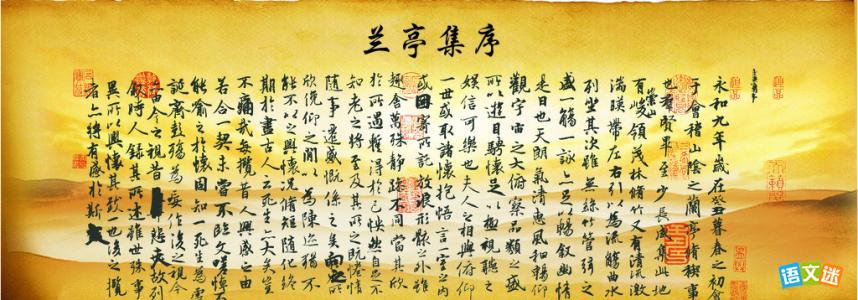 兰亭集序
永和九年歲在癸丑暮春之初會
于會稽山陰之蘭亭脩稧事
也羣賢畢至少長咸集此地
有崇山峻領茂林脩竹又有清流激
湍暎帶左右引以為流觴曲水
列坐其次雖無絲竹管弦之
盛一觴一詠亦足以暢敘幽情
是日也天朗氣清惠風和暢仰
觀宇宙之大俯察品類之盛
所以遊目騁懷足以極視聽之
娛信可樂也夫人之相與俯仰
一世或取諸懷抱悟言一室之內
或因寄所託放浪形骸之外雖
趣舍萬殊靜躁不同當其欣
於所遇蹔得於己怏然自足不
知老之將至及其所之既惓情
隨事遷感慨係之矣向之所
欣俛仰之閒以為陳迹猶不
能不以之興懷況脩短隨化終
期於盡古人云死生亦大矣豈
不痛哉每攬昔人興感之由
若合一契未嘗不臨文嗟悼不
能喻之於懷固知一死生為虛
誕齊彭殤為妄作後之視今
亦由今之視昔悲夫故列
敘時人錄其所述雖世殊事
異所以興懷其致一也後之攬
者亦將有感於斯文
语文迷